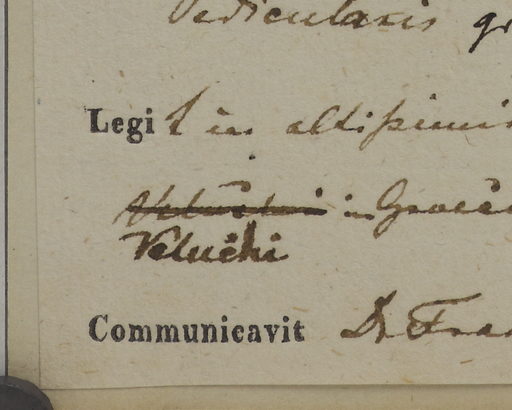 Pedicularis gr
Legit in altissimi
Velučhi in Graecâ
Veluchi
Communicavit Dr Fra